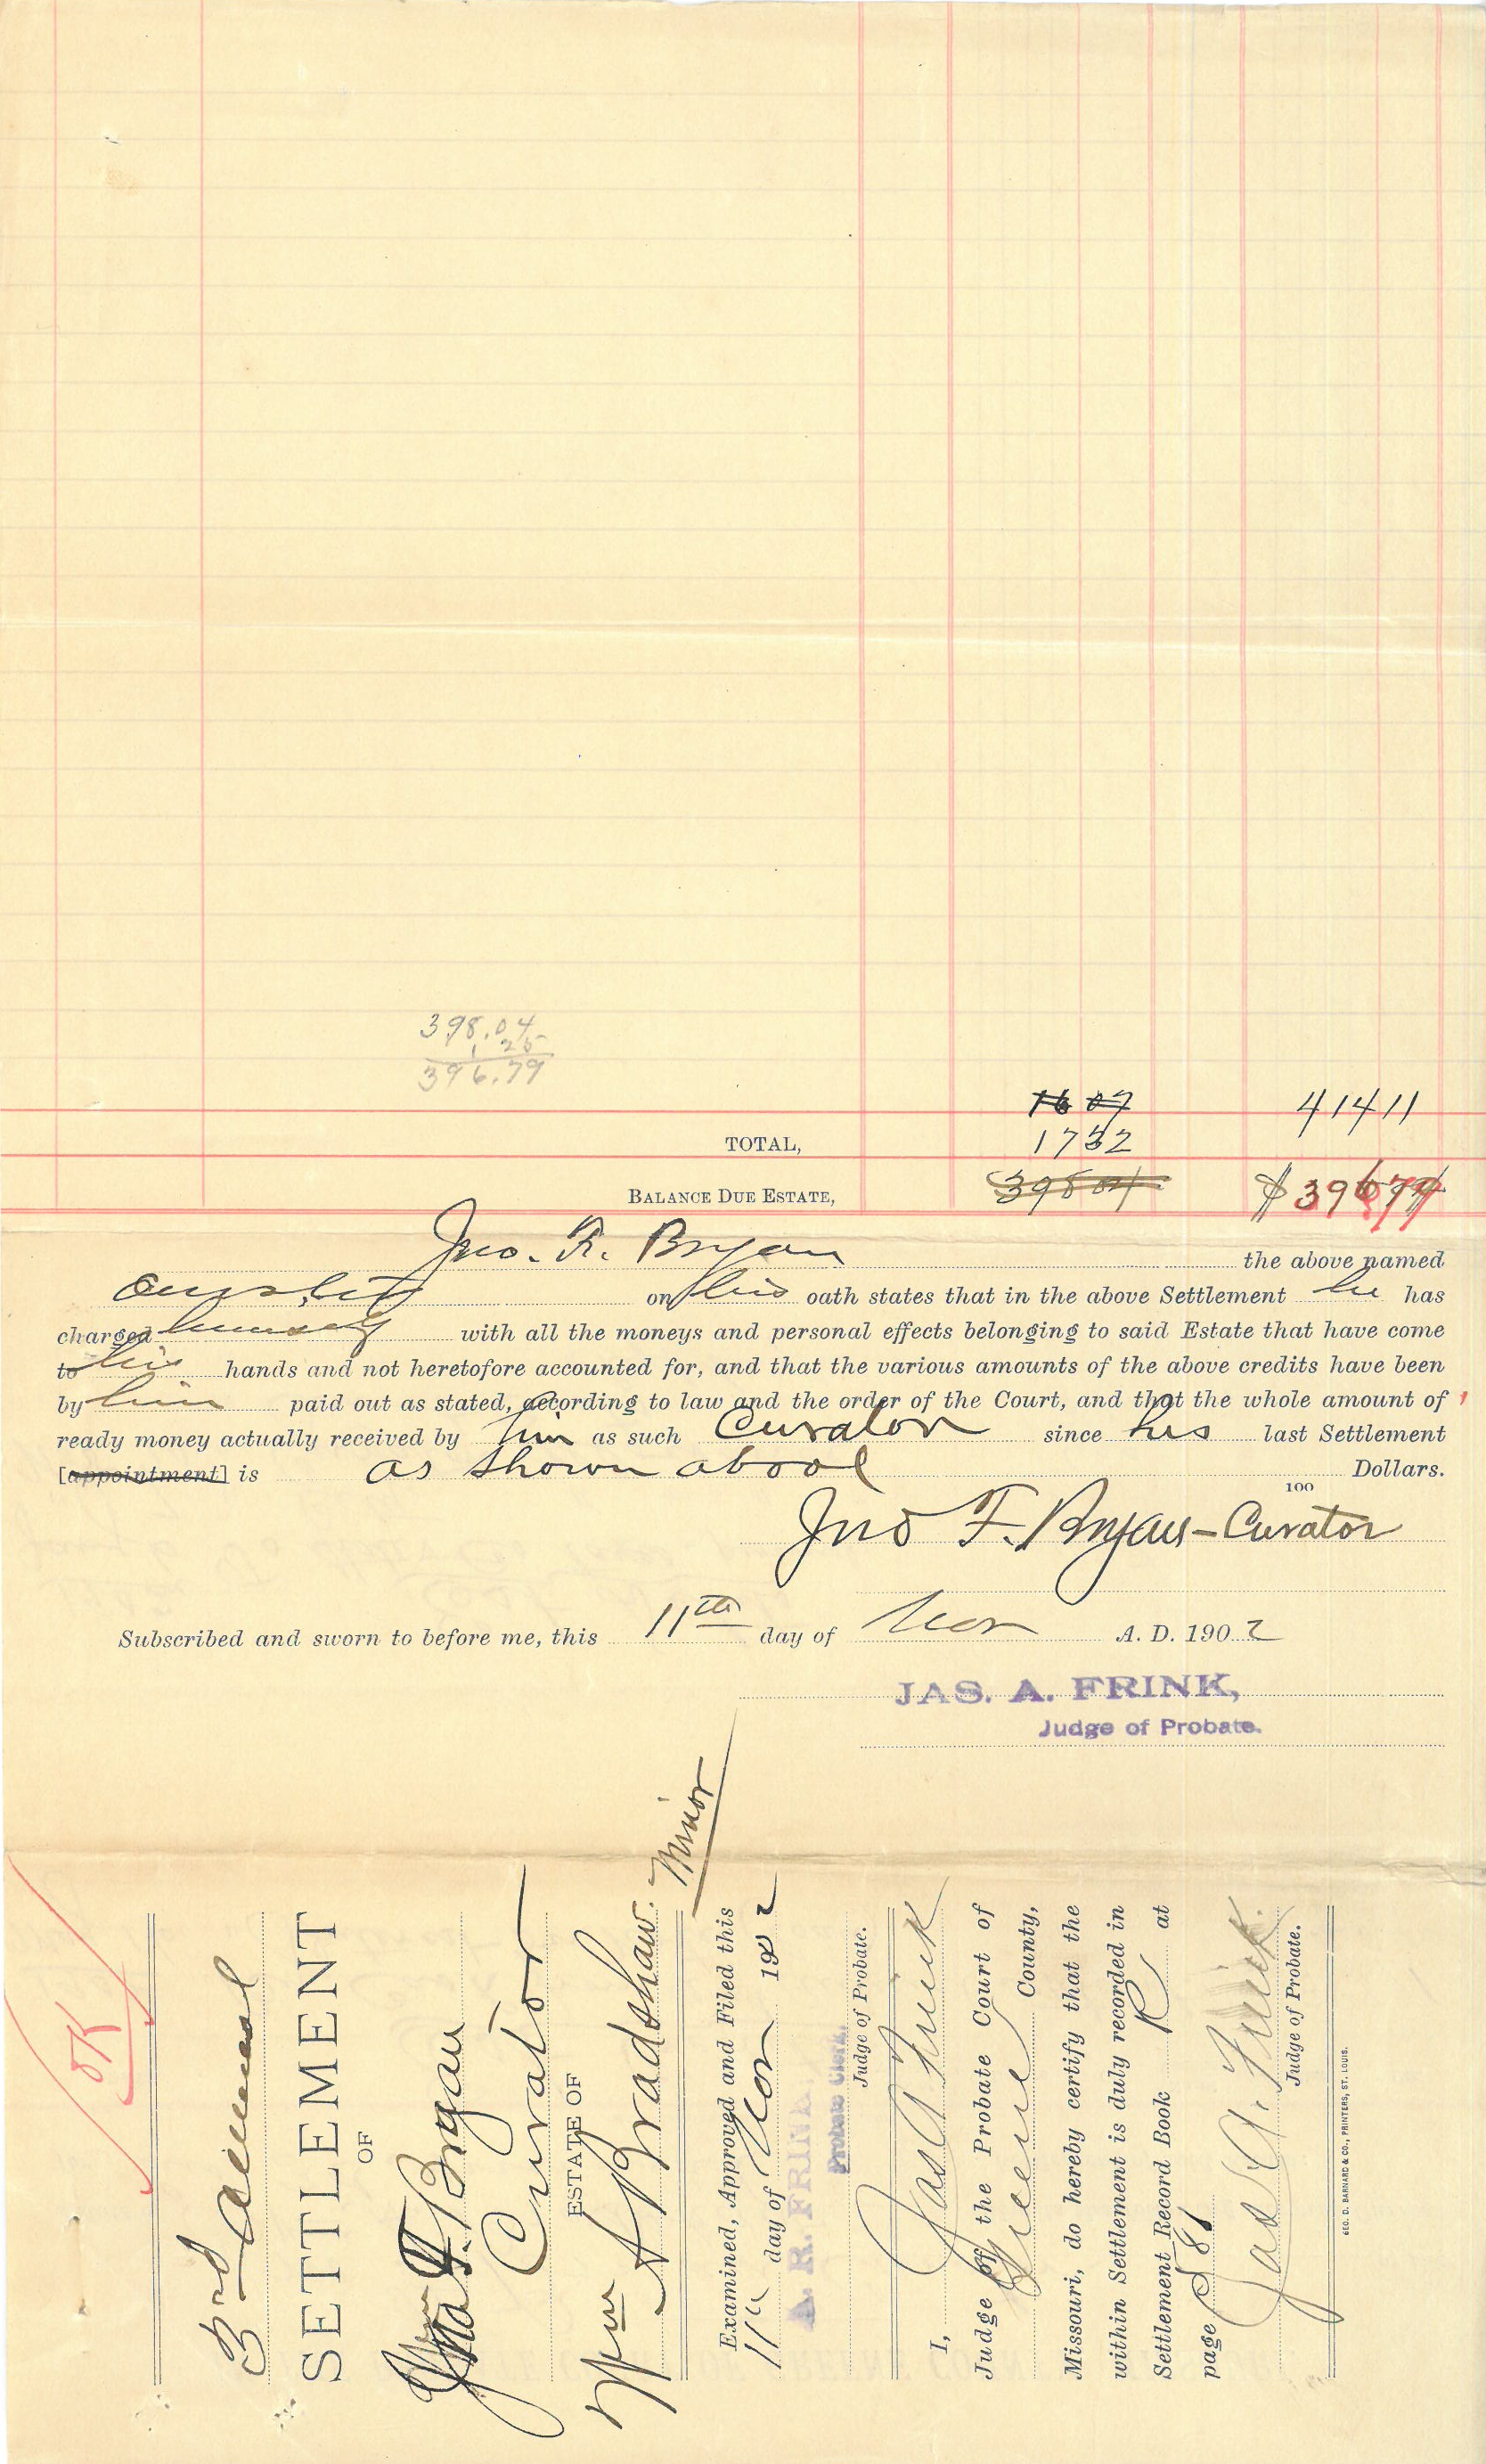 398.04
1 25
396.79
16 07 41411
TOTAL, 1732
BALANCE DUE ESTATE, 39804 $39679
Jno. F. Bryan the above named
on his oath states that in the above Settlement he has
charged himself with all the moneys and personal effects belonging to said Estate that have come
to his hands and not heretofore accounted for, and that the various amounts of the above credits have been
by him paid out as stated, according to law and the order of the Court, and that the whole amount of
ready money actually received by him as such Curator since his last Settlement
[appointment] is as shown above Dollars.
100
Jno F. Bryan - Curator
Subscribed and sworn to before me, this 11th day of Nov A. D. 1902
JAS. A. FRINK,
Judge of Probate.
OK
3rd Annual
SETTLEMENT
OF
Jno F. Bryan
Curator
ESTATE OF
Wm A Bradshaw. Minor
Examined, Approved and Filed this
11th day of Nov 1902
A. R. FRINK,
Probate Clerk.
Judge of Probate.
I, Jas A Frink
Judge of the Probate Court of
Greene County,
Missouri, do hereby certify that the
within Settlement is duly recorded in
Settlement Record Book R at
page 586
Jas. A. Frink.
Judge of Probate.
GEO. D. BARNARD & CO., PRINTERS, ST. LOUIS.